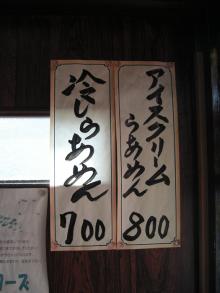 アイスクリーム
らあめん
800
冷しらあめん
700
ーズ